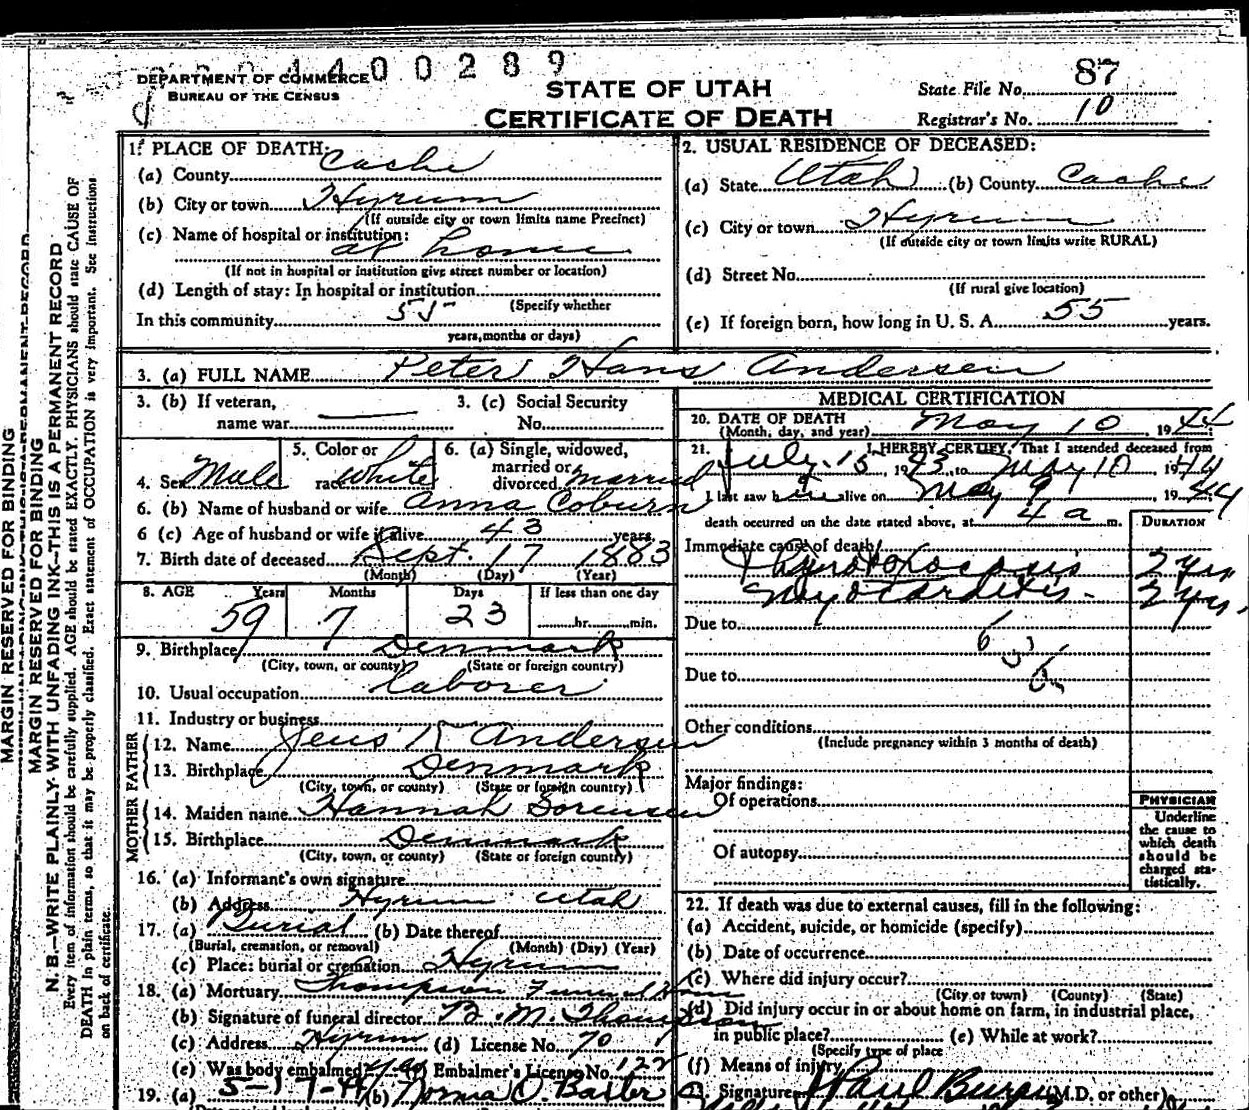 00289
DEPARTMENT OF COMMERCE
BUREAU OF THE CENSUS
STATE OF UTAH
CERTIFICATE OF DEATH
State File No. 87
Registrar's No. 10
MARGIN RESERVED FOR BINDING
MARGIN RESERVED FOR BINDING
N. B.—WRITE PLAINLY WITH UNFADING INK—THIS IS A PERMANENT RECORD
Every item of information should be carefully supplied. AGE should be stated EXACTLY. PHYSICIANS should state CAUSE OF
DEATH in plain terms, so that it may be properly classified. Exact statement of OCCUPATION is very important. See instructions
on back of certificate.
1. PLACE OF DEATH:
(a) County Cache
(b) City or town Hyrum
(If outside city or town limits name Precinct)
(c) Name of hospital or institution:
at home
(If not in hospital or institution give street number or location)
(d) Length of stay: In hospital or institution
(Specify whether
In this community 55
years, months or days)
2. USUAL RESIDENCE OF DECEASED:
(a) State Utah (b) County Cache
(c) City or town Hyrum
(If outside city or town limits write RURAL)
(d) Street No.
(If rural give location)
(e) If foreign born, how long in U. S. A. 55 years.
3. (a) FULL NAME Peter Hans Andersen
3. (b) If veteran,
name war
3. (c) Social Security
No.
4. Sex Male
5. Color or
race white
6. (a) Single, widowed,
married or
divorced married
6. (b) Name of husband or wife Anna Coburn
6 (c) Age of husband or wife if alive 43 years
7. Birth date of deceased Sept. 17 1883
(Month) (Day) (Year)
8. AGE Years Months Days If less than one day
59 7 23 hr. min.
9. Birthplace Denmark
(City, town, or county) (State or foreign country)
10. Usual occupation laborer
11. Industry or business
FATHER
12. Name Jens K Andersen
13. Birthplace Denmark
(City, town, or county) (State or foreign country)
MOTHER
14. Maiden name Hannah Sorensen
15. Birthplace Denmark
(City, town, or county) (State or foreign country)
16. (a) Informant's own signature
(b) Address Hyrum Utah
17. (a) Burial (b) Date thereof
(Burial, cremation, or removal) (Month) (Day) (Year)
(c) Place: burial or cremation Hyrum
18. (a) Mortuary Thompson Funeral Home
(b) Signature of funeral director B. M. Thompson
(c) Address Hyrum (d) License No. 70
(e) Was body embalmed yes Embalmer's License No. 122
19. (a) 5-17-44 (b) Norma O. Baxter
MEDICAL CERTIFICATION
20. DATE OF DEATH
(Month, day, and year) May 10 1944
21. I HEREBY CERTIFY, That I attended deceased from
July 15 1943, to May 10 1944
I last saw him alive on May 9 1944
death occurred on the date stated above, at 4 a m.
DURATION
Immediate cause of death
Thyrotoxicosis 2 yrs
Myocarditis 2 yrs.
Due to
Due to
Other conditions
(Include pregnancy within 3 months of death)
Major findings:
Of operations
Of autopsy
PHYSICIAN
Underline
the cause to
which death
should be
charged sta-
tistically.
22. If death was due to external causes, fill in the following:
(a) Accident, suicide, or homicide (specify)
(b) Date of occurrence
(c) Where did injury occur?
(City or town) (County) (State)
(d) Did injury occur in or about home on farm, in industrial place,
in public place? (e) While at work?
(Specify type of place
(f) Means of injury
Signature Paul Burgess (M.D. or other)